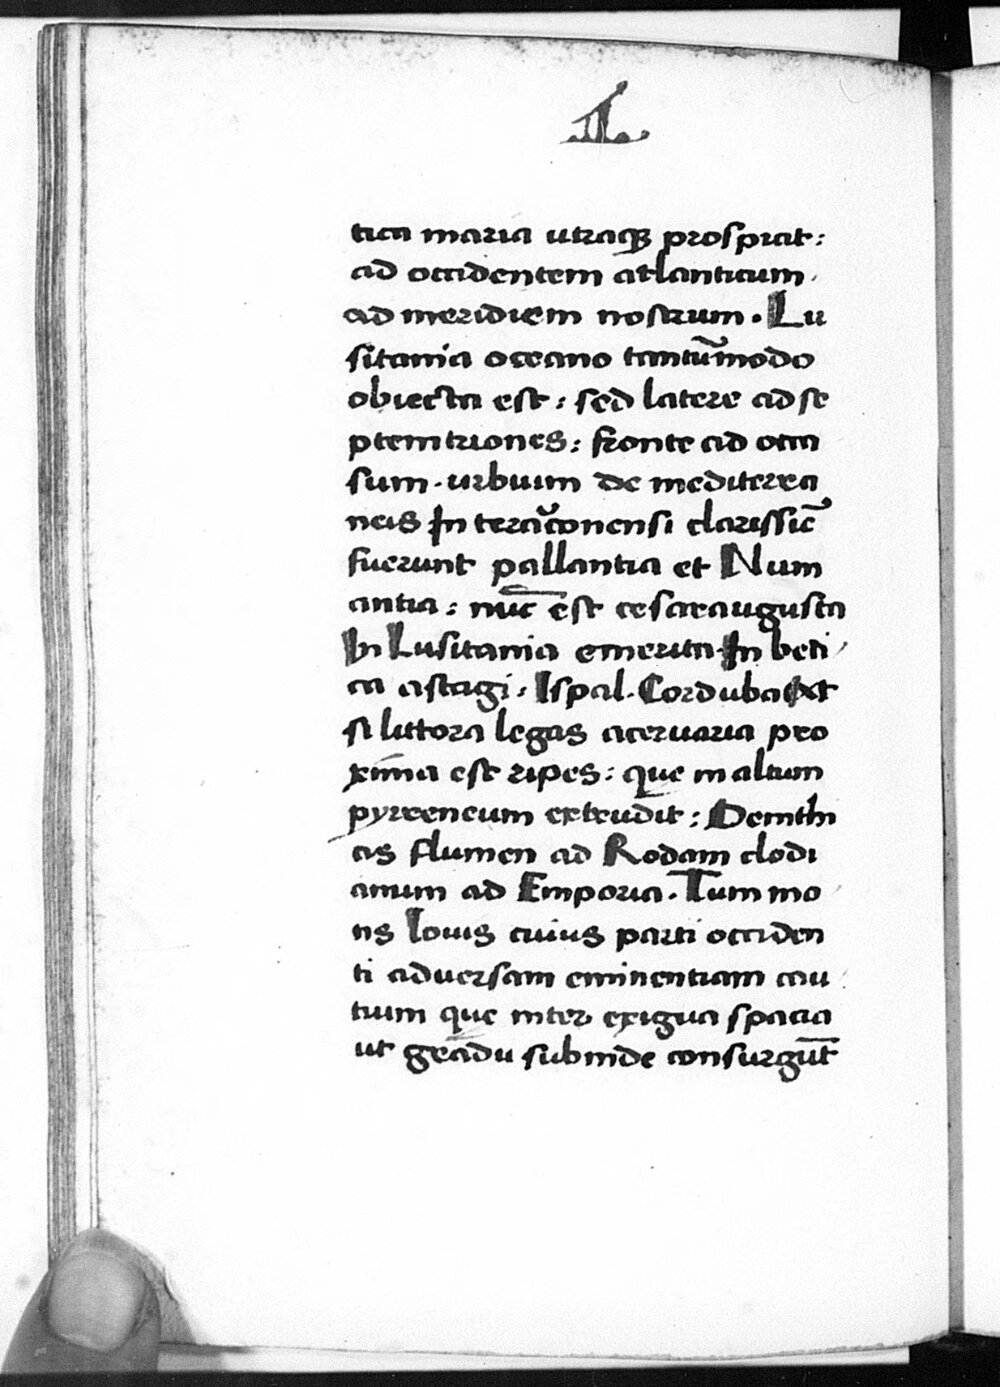 tica maria utraqꝫ prospicit:
ad occidentem atlanticum
ad meridiem nostrum. Lu
sitania oceano tantũmodo
obiecta est: sed latere ad se
ptemtriones: fronte ad occa
sum. urbium de mediterea
neis In teracõnensi clarissic̃
fuerunt pallantia et Num
antia: nũc est cesareaugusta
In Lusitania emerita. In beti
ca astagi: Ispal. Corduba Et
si littora legas acervaria pro
xima est ripes: que in altum
pyreeneum extrudit: Deinthi
cis flumen ad Rodam clodi
anum ad Emporia. Tum mo
tis Iovis cuius parti occiden
ti adversam eminentiam cau
tium que inter exigua spacia
ut gradu subinde consurgũt